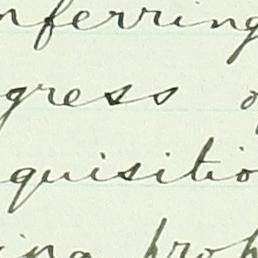 nferring
gress o
quisitio
ing prop